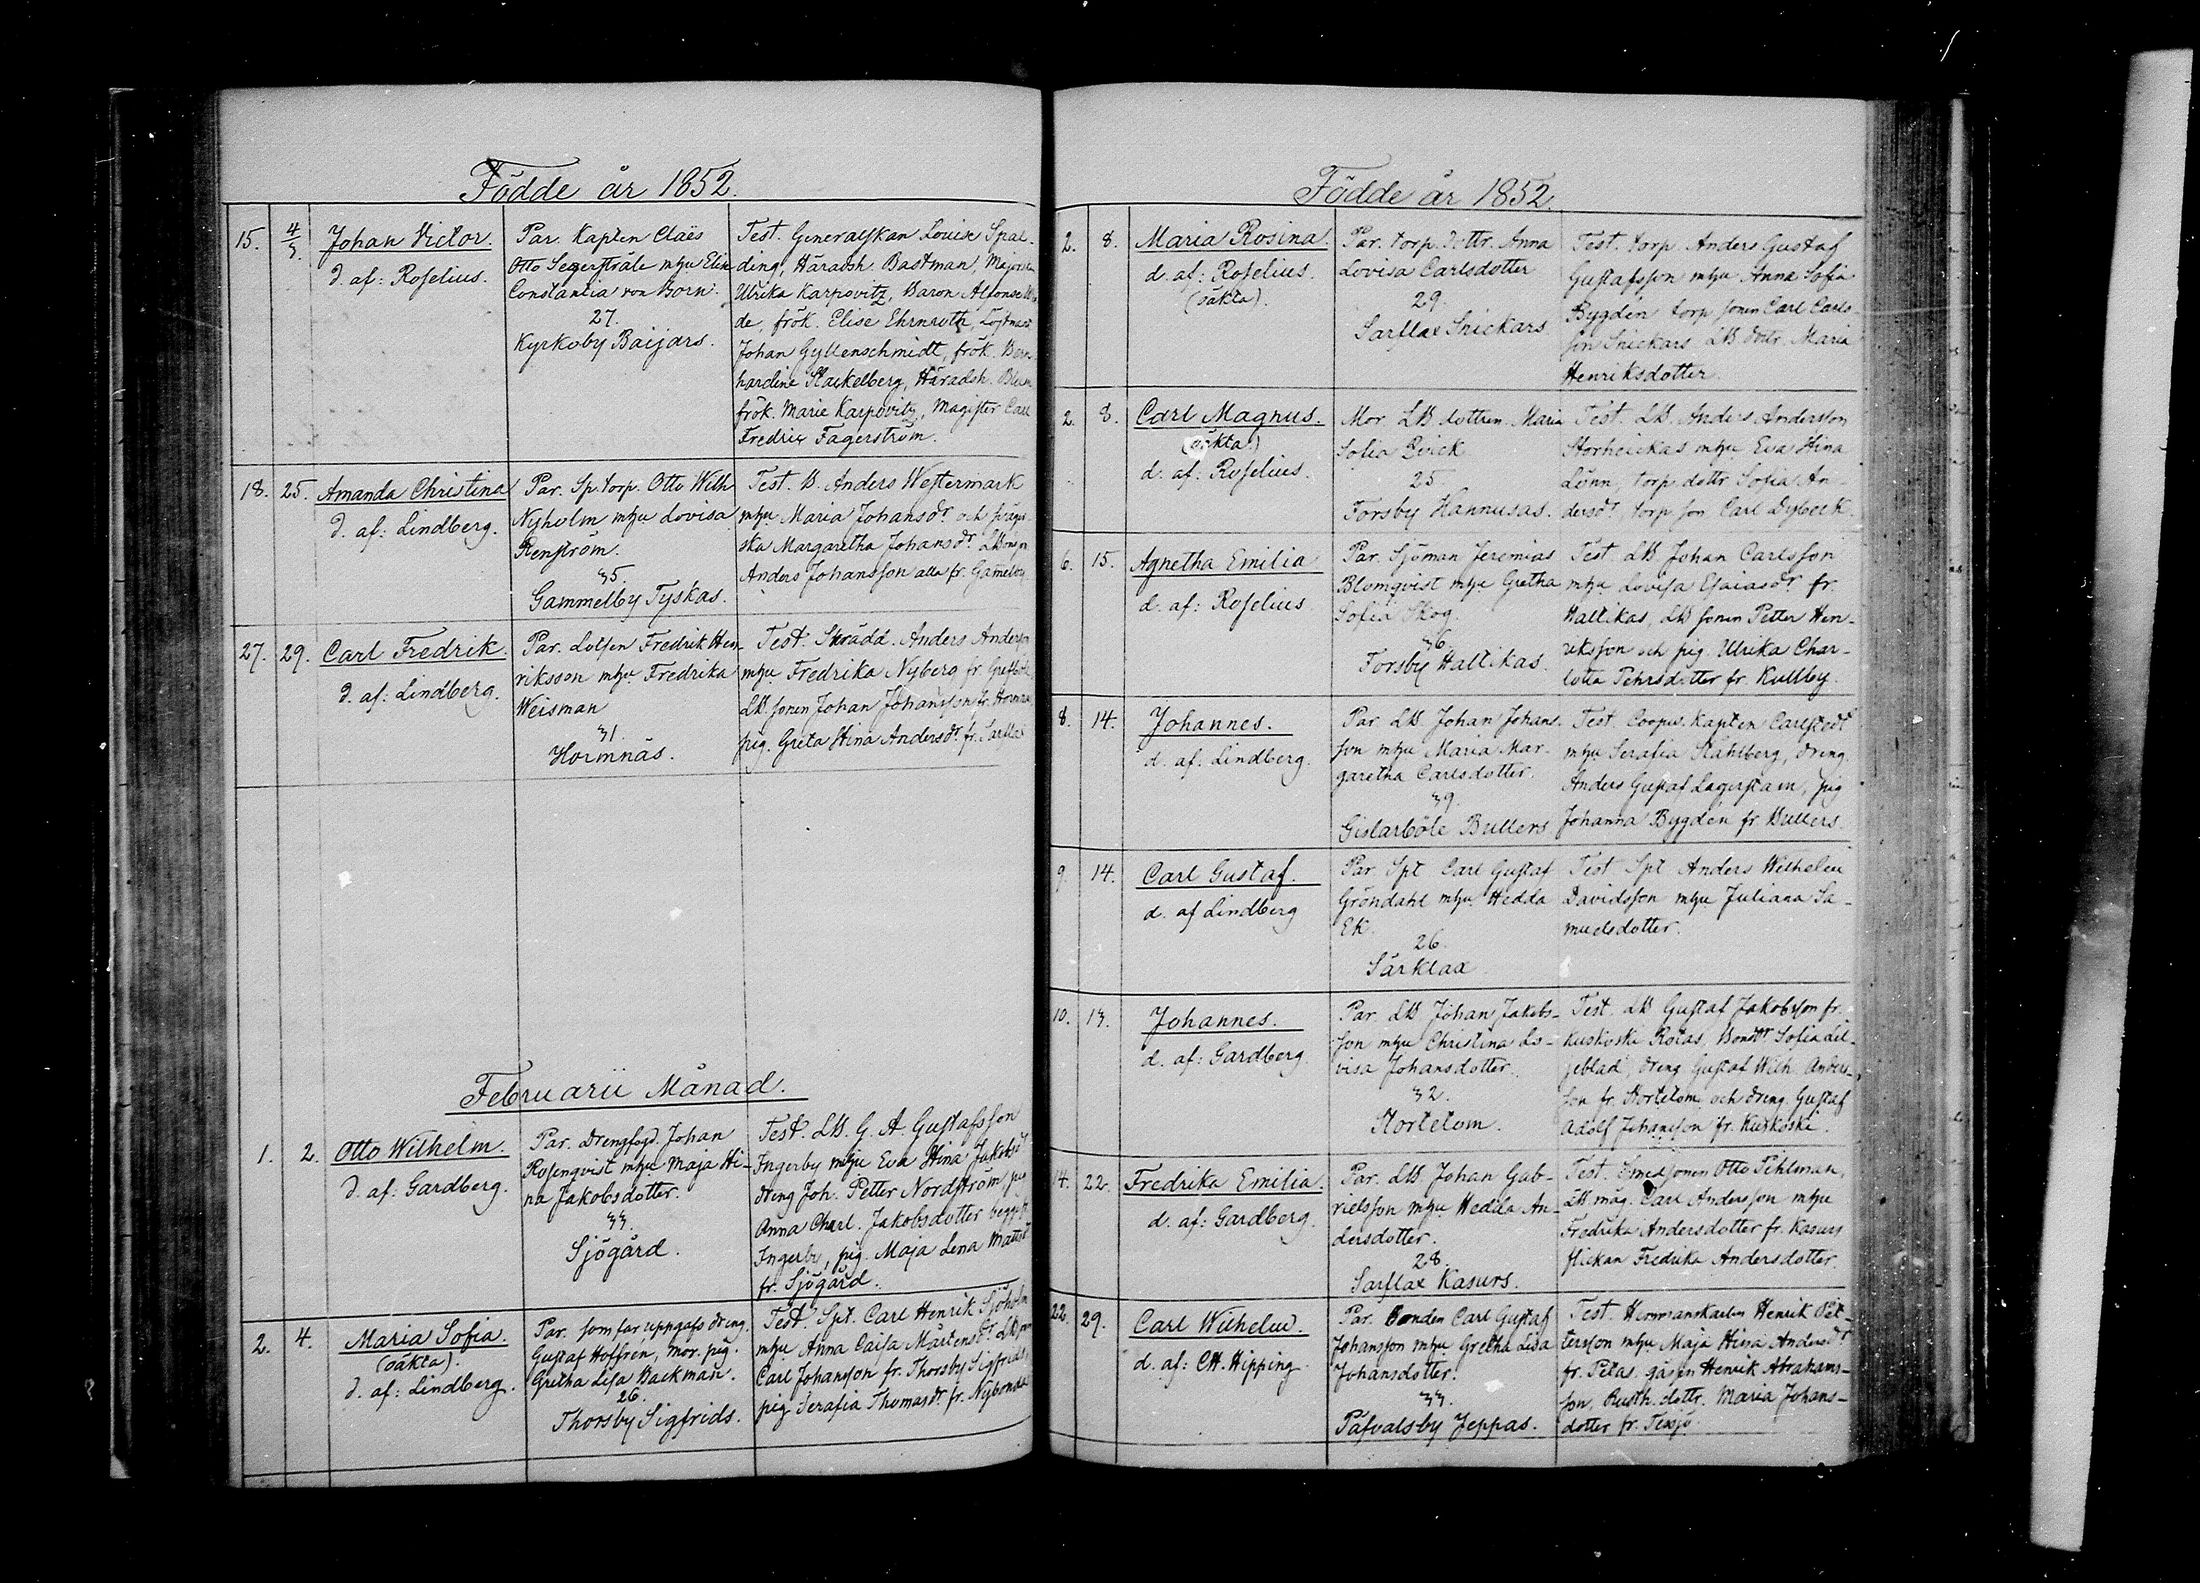 Födde år 1852.
15. 4/3. Johan Victor.
d. af: Roselius.
Par. Kapten Claës
Otto Segerstråle m hu Elise
Constantia von Born.
27.
Kyrkoby Baijars.
Test. Generalskan Louise Spal-
ding, Häradsh. Bastman, Majorskan
Ulrika Karpovitz, Baron Alfonse
de, frök. Elise Ehrnroth, Löjtnant
Johan Gyllenschmidt, frök. Bern-
hardine Stackelberg, Häradsh. Blum
frök. Marie Karpovitz, Magister Carl
Fredric Fagerström.
18. 25. Amanda Christina
d. af: Lindberg.
Par. Sp. torp. Otto Wilh
Nyholm m hu Lovisa
Renström.
35.
Gammelby Tyskas.
Test. B. Anders Westermark
m hu Maria Johansdr och
ska Margaretha Johansdr.
Anders Johansson alla fr. Gameby
27. 29. Carl Fredrik.
d. af: Lindberg.
Par. Lotsen Fredrik Hen-
riksson m hu Fredrika
Weisman
31.
Hormnäs.
Test. Skrädd. Anders Anderss
m hu Fredrika Nyberg fr.
LB. sonen Johan Johansson fr. Hormnäs
pig. Greta Stina Andersdr. fr. Sarvlax
Februarii Månad.
1. 2. Otto Wilhelm.
d. af: Gardberg.
Par. Drengfogd. Johan
Rosenqvist m hu Maja Sti-
na Jakobsdotter.
33.
Sjögård.
Test. LB. G. A. Gustafsson
Ingerby m hu Eva Stina Jakobsd
dreng Joh. Petter Nordström pig
Anna Charl. Jakobsdotter begge fr
Ingerby, pig. Maja Lena Mattsd
fr. Sjögård.
2. 4. Maria Sofia.
(oäkta).
d. af: Lindberg.
Par. som far uppgafs dreng.
Gustaf Hoffren, mor. pig.
Gretha Lisa Backman.
26.
Thorsby Sigfrids.
Test. Spt. Carl Henrik Sjöholm
m hu Anna Caisa Mårtensdr. LB son
Carl Johansson fr. Thorsby Sigfrids
pig. Serafia Thomasdr. fr. Nybonda
Födde år 1852.
2. 8. Maria Rosina.
d. af: Roselius.
(oäkta).
Par. torp. dottr. Anna
Lovisa Carlsdotter
29.
Sarflax Snickars
Test. torp. Anders Gustaf
Gustafsson m hu Anna Sofia
Bygdén torp sonen Carl Carls
son Snickars LB dottr. Maria
Henriksdotter.
2. 8. Carl Magnus.
(oäkta)
d. af. Roselius.
Mor. LB. dottren Maria
Sofia Qvick
25
Forsby Hannusas.
Test. LB. Anders Andersson
Storheickas m hu Eva Stina
Lönn, torp. dottr Sofia An-
dersdr. torp son Carl Dybeck.
6. 15. Agnetha Emilia
d. af: Roselius
Par. Sjöman Jeremias
Blomqvist m hu Gretha
Sofia Skog.
36.
Forsby Hallikas.
Test LB Johan Carlsson
m hu Lovisa Esaiasdr fr.
Hallikas, LB sonen Petter Hen-
riksson och pig. Ulrika Char-
lotta Pehrsdotter fr. Kullby.
8. 14. Johannes.
d. af: Lindberg.
Par LB Johan Johans-
son m hu Maria Mar-
garetha Carlsdotter.
39.
Gislarböle Bullers
Test Coopv. Kapten Carlstedt
m hu Serafia Ståhlberg, dreng.
Anders Gustaf Lagerstam, pig
Johanna Bygdén fr Bullers.
9. 14. Carl Gustaf.
d. af Lindberg
Par Spt Carl Gustaf
Gröndahl m hu Hedda
Ek.
26.
Särklax
Test Spt Anders Wilhelm
Davidsson m hu Juliana Sa-
muelsdotter.
10. 13. Johannes.
d. af: Gardberg
Par LB Johan Jakobs-
son m hu Christina Lo-
visa Johansdotter.
32.
Stortetom.
Test. LB Gustaf Jakobsson fr.
Kuskoski Rotas, Bondr Sofia Lil-
jeblad, dreng Gustaf Wilh. Anders-
son fr. Stortetom och dreng. Gustaf
Adolf Johansson fr. Kuskoski.
14. 22. Fredrika Emilia.
d. af: Gardberg.
Par. LB Johan Gab-
rielsson m hu Hedda An-
dersdotter.
28.
Sarflax Kasurs.
Test. Smedsonen Otto Pihlman,
LB måg. Carl Andersson m hu
Fredrika Andersdotter fr. Kasurs
flickan Fredrika Andersdotter.
22. 29. Carl Wilhelm.
d. af: CH. Hipping.
Par. Bonden Carl Gustaf
Johansson m hu Gretha Lisa
Johansdotter.
33.
Påfvalsby Jeppas.
Test. Hemmanskarlen Henrik Pet-
tersson m hu Maja Stina Andersdr
fr. Petas. gåsen Henrik Abrahams-
son, Rusth. dottr. Maria Johans-
dotter fr. Tesjö.